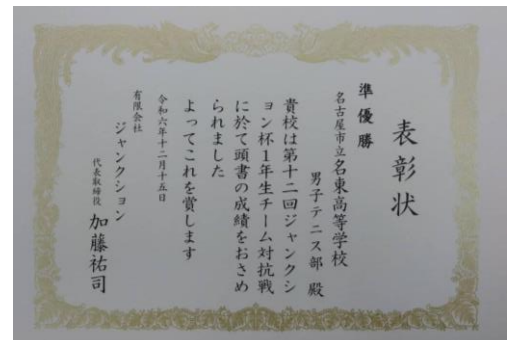 表彰状
準優勝
名古屋市立名東高等学校
男子テニス部 殿
貴校は第十二回ジャンクシ
ョン杯1年生チーム対抗戦
に於て頭書の成績をおさめ
られました
よってこれを賞します
令和六年十二月十五日
有限会社
ジャンクション
代表取締役 加藤祐司